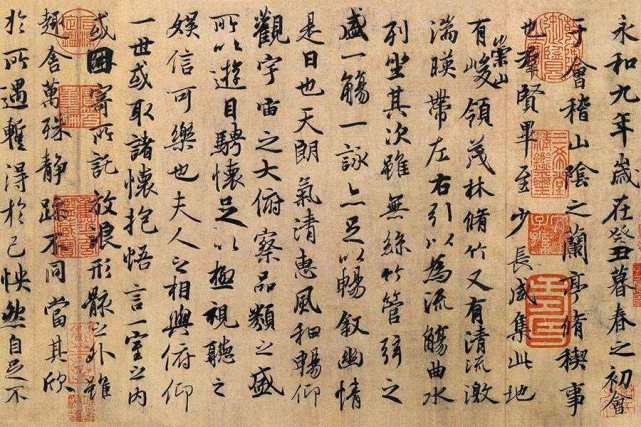 永和九年歲在癸丑暮春之初會
于會稽山陰之蘭亭脩稧事
也群賢畢至少長咸集此地
有崇山峻領茂林脩竹又有清流激
湍暎帶左右引以為流觴曲水
列坐其次雖無絲竹管弦之
盛一觴一詠亦足以暢敘幽情
是日也天朗氣清惠風和暢仰
觀宇宙之大俯察品類之盛
所以遊目騁懷足以極視聽之
娛信可樂也夫人之相與俯仰
一世或取諸懷抱悟言一室之內
或因寄所託放浪形骸之外雖
趣舍萬殊靜躁不同當其欣
於所遇暫得於己怏然自足不